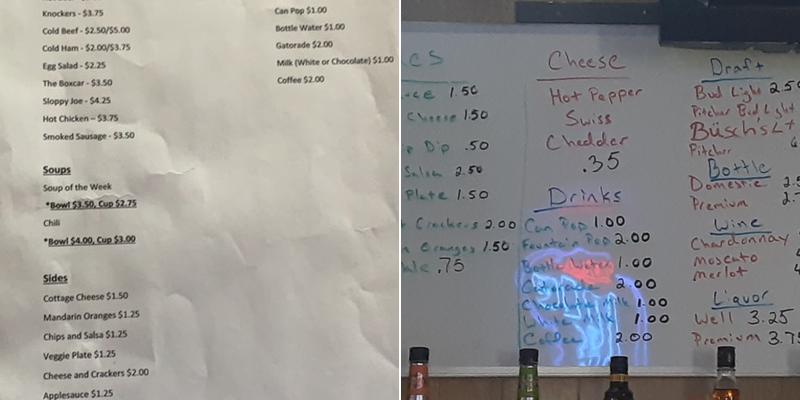 Knockers - $3.75
Cold Beef - $2.50/$5.00
Cold Ham - $2.00/$3.75
Egg Salad - $2.25
The Boxcar - $3.50
Sloppy Joe - $4.25
Hot Chicken – $3.75
Smoked Sausage - $3.50
Soups
Soup of the Week
*Bowl $3.50, Cup $2.75
Chili
*Bowl $4.00, Cup $3.00
Sides
Cottage Cheese $1.50
Mandarin Oranges $1.25
Chips and Salsa $1.25
Veggie Plate $1.25
Cheese and Crackers $2.00
Applesauce $1.25
Can Pop $1.00
Bottle Water $1.00
Gatorade $2.00
Milk (White or Chocolate) $1.00
Coffee $2.00
1.50
Cheese 1.50
Dip .50
Salsa 2.50
Plate 1.50
Crackers 2.00
Oranges 1.50
.75
Cheese
Hot Pepper
Swiss
Cheddar
.35
Drinks
Can Pop 1.00
Fountain Pop 2.00
Bottle Water 1.00
Gatorade 2.00
Chocolate Milk 1.00
White Milk 1.00
Coffee 2.00
Draft
Bud Light 2.50
Pitcher Bud Light
Busch's Lt
Pitcher
Bottle
Domestic
Premium
Wine
Chardonnay
Moscato
Merlot
Liquor
Well 3.25
Premium 3.75